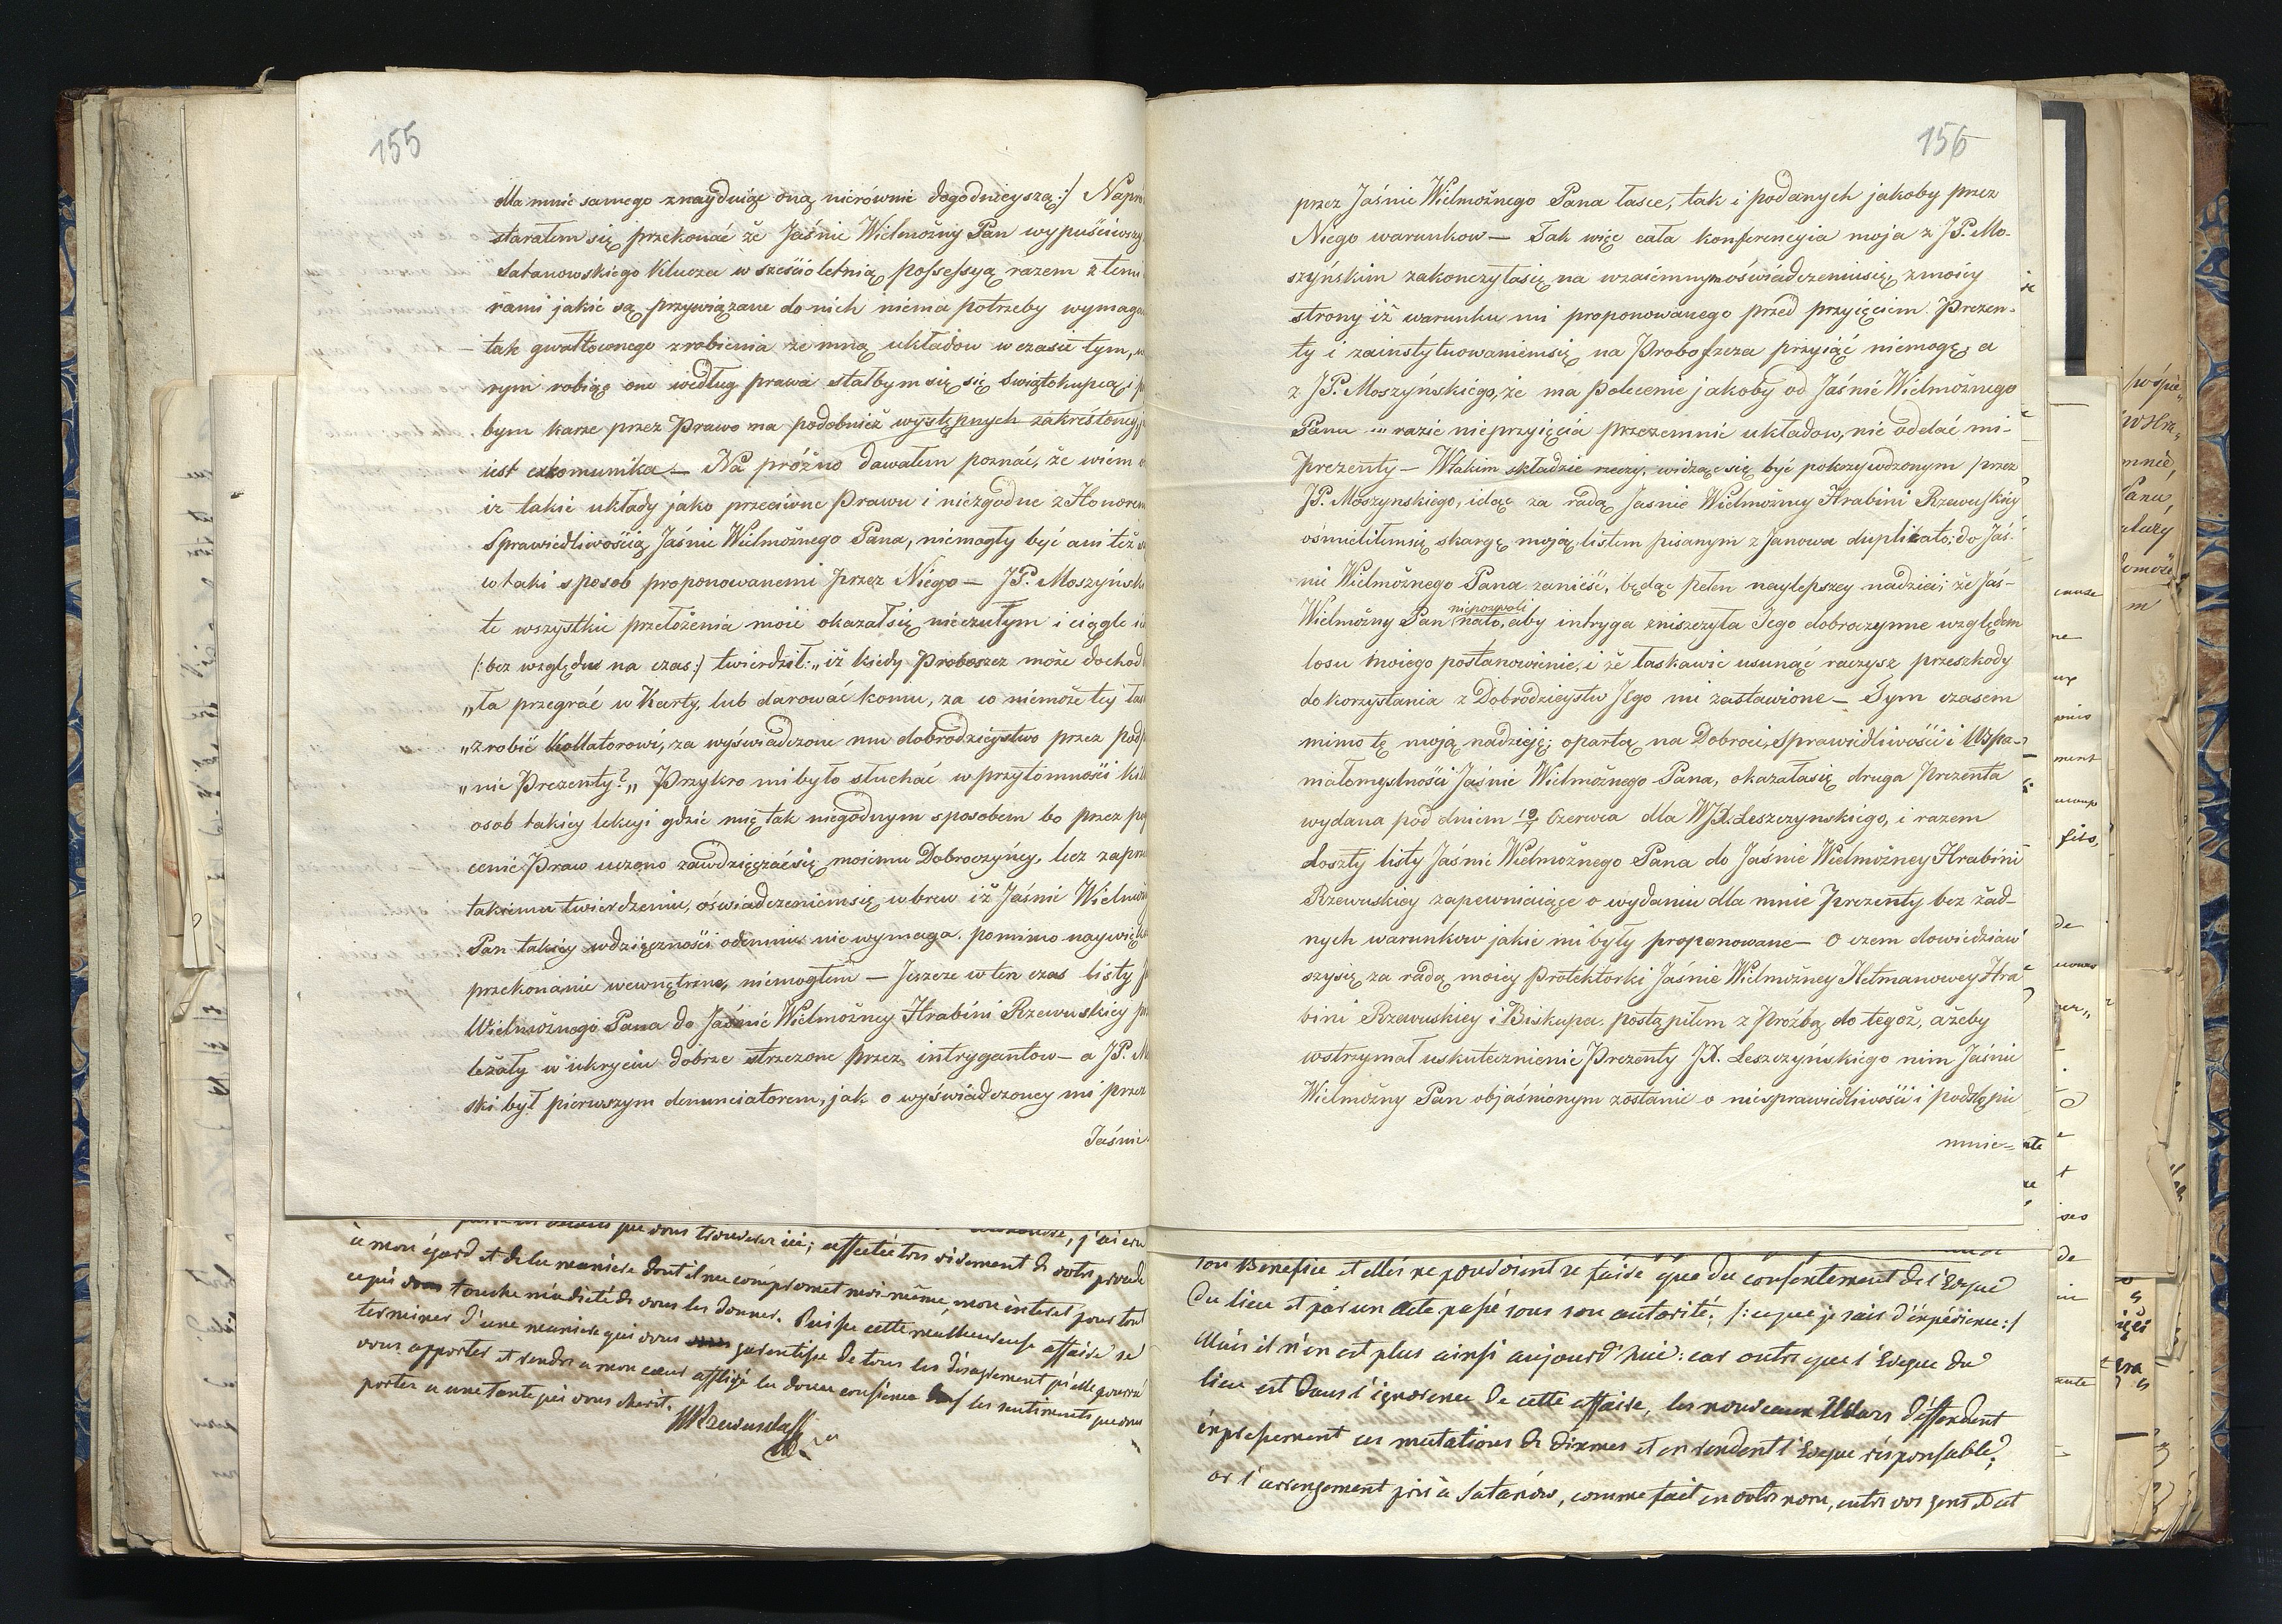 155
dla mnie samego znayduiąc oną nierównie dogodnieyszą:/ Napró
starałem się przekonać że Jaśnie Wielmożny Pan wypuściwszy
Satanowskiego Klucza w sześcioletnią possessyą razem z temi
rami jakie są przywiązane do nich niema potrzeby wymaga
tak gwałtownego zrobienia ze mną układow w czasie tym, w
rym robiąc one według prawa stałbym się się Swiątokupcą, i p
bym karze przez Prawo na podobnież występnych zakreśloney, j
iest exkomunika — Na próżno dawałem poznać, że wiem
iż takie układy jako przeciwne Prawu i niezgodne z Honorem
Sprawiedliwością Jaśnie Wielmożnego Pana, niemogły być ani też
w taki sposob proponowanemi przez Niego — JP. Moszyńsk
te wszystkie przełożenia moie okazał się nieczułym i ciągle i
(:bez względu na czas:) twierdził: „iż kiedy Proboszcz może dochod
„ta przegrać w Karty, lub darować komu, za co niemoże tey łas
„zrobić Kollatorowi, za wyświadczone mu dobrodzieystwo przez pod
„nie Prezenty?„ Przykro mi było słuchać w przytomności kil
osob takiey lekcyi gdzie mię tak niegodnym sposobem bo przez po
cenie Praw uczono zawdzięczać się moiemu Dobroczyńcy, lecz zaprz
takiemu twierdzeniu, oświadczeniem się wbrew iż Jaśnie Wielmoż
Pan takiey wdzięczności odemnie nie wymaga. pomimo naywięk
przekonanie wewnętrzne, niemogłem — Jeszcze w ten czas listy J
Wielmożnego Pana do Jaśnie Wielmożney Hrabini Rzewuskiey p
leżały w ukryciu dobrze strzeżone przez intrygantow — a JP. M
ski był pierwszym denunciatorem, jak o wyświadczoney mi przez
Jaśnie
à mon égard et de la maniere dont il me compromet moi-même, mon interet pour tout
ce qui vous touche m'a dicté de vous les donner. Puisse cette malheureuse affaire se
terminer d'une maniere qui vous garentisse de tous les désagrement qu'elle pourra
vous apporter et rendre a mon cœur affligé la douce confience des sentiments que vous
portez a une Tante qui vous cherit.
156
przez Jaśnie Wielmożnego Pana łasce, tak i podanych jakoby przez
Niego warunkow — Tak więc cała konferencyia moja z JP. Mo-
szyńskim zakonczyła się na wzaiemnym oświadczeniu się, z moiey
strony iż warunku mi proponowanego przed przyięciem Prezen-
ty i zainstytuowaniem się na Proboszcza przyiąć niemogę, a
z JP. Moszyńskiego, że ma polecenie jakoby od Jaśnie Wielmożnego
Pana w razie nieprzyięcia przezemnie układow, nie oddać mi-
Prezenty — W takim składzie rzeczy, widząc się być pokrzywdzonym przez
JP. Moszynskiego, idąc za radą Jasnie Wielmożney Hrabini Rzewuskiey
ośmieliłem się skargę moją listem pisanym z Janowa duplikato, do Jaś-
nie Wielmożnego Pana zanieść, będąc pełen naylepszey nadziei, że Jaś-
Wielmożny Pan niepozwoli nato, aby intryga zniszczyła Jego dobroczynne względem
losu moiego postanowienie, i że łaskawie usunąć raczysz przeszkody
do korzystania z Dobrodzieystw Jego mi zastawione — Tym czasem
mimo tę moją nadzieję, opartą na Dobroci, Sprawiedliwości i Wspa-
małomyslności Jaśnie Wielmożnego Pana, okazała się druga Prezenta
wydana pod dniem Czerwca dla WJX. Leszczynskiego, i razem
doszły listy Jaśnie Wielmożnego Pana do Jaśnie Wielmożney Hrabini
Rzewuskiey zapewniaiące o wydaniu dla mnie Prezenty bez żad-
nych warunkow jakie mi były proponowane — O czem dowiedziaw
szy się, za radą moiey Protektorki Jaśnie Wielmożney Hetmanowey Hra-
bini Rzewuskiey i Biskupa, postąpiłem z Proźbą do tegoż, ażeby
wstrzymał uskutecznienie Prezenty JX. Leszczyńskiego nim Jaśnie
Wielmożny Pan objaśnionym zostanie o niesprawiedliwości i podstępie
mnie=
son Benefice et elles ne pouvoient se faire que du consentement de l'Eveque
du lieu et par un acte passé sous son autorité; /:ce que je sais d'expérience:/
Mais il n'en est plus ainsi aujourd'hui: car outre que l'Eveque du
lieu est dans l'ignorence de cette affaire, les nouveaux Ukazs déffendent
expressement ces mutations de dixmes et en rendent l'Eveque résponsable;
or l'arrengement pris à Satanów, comme fait en votre nom, entre vos gens et cet